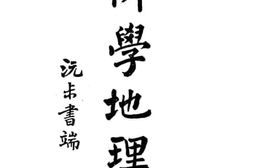 學地理
沅尗書端